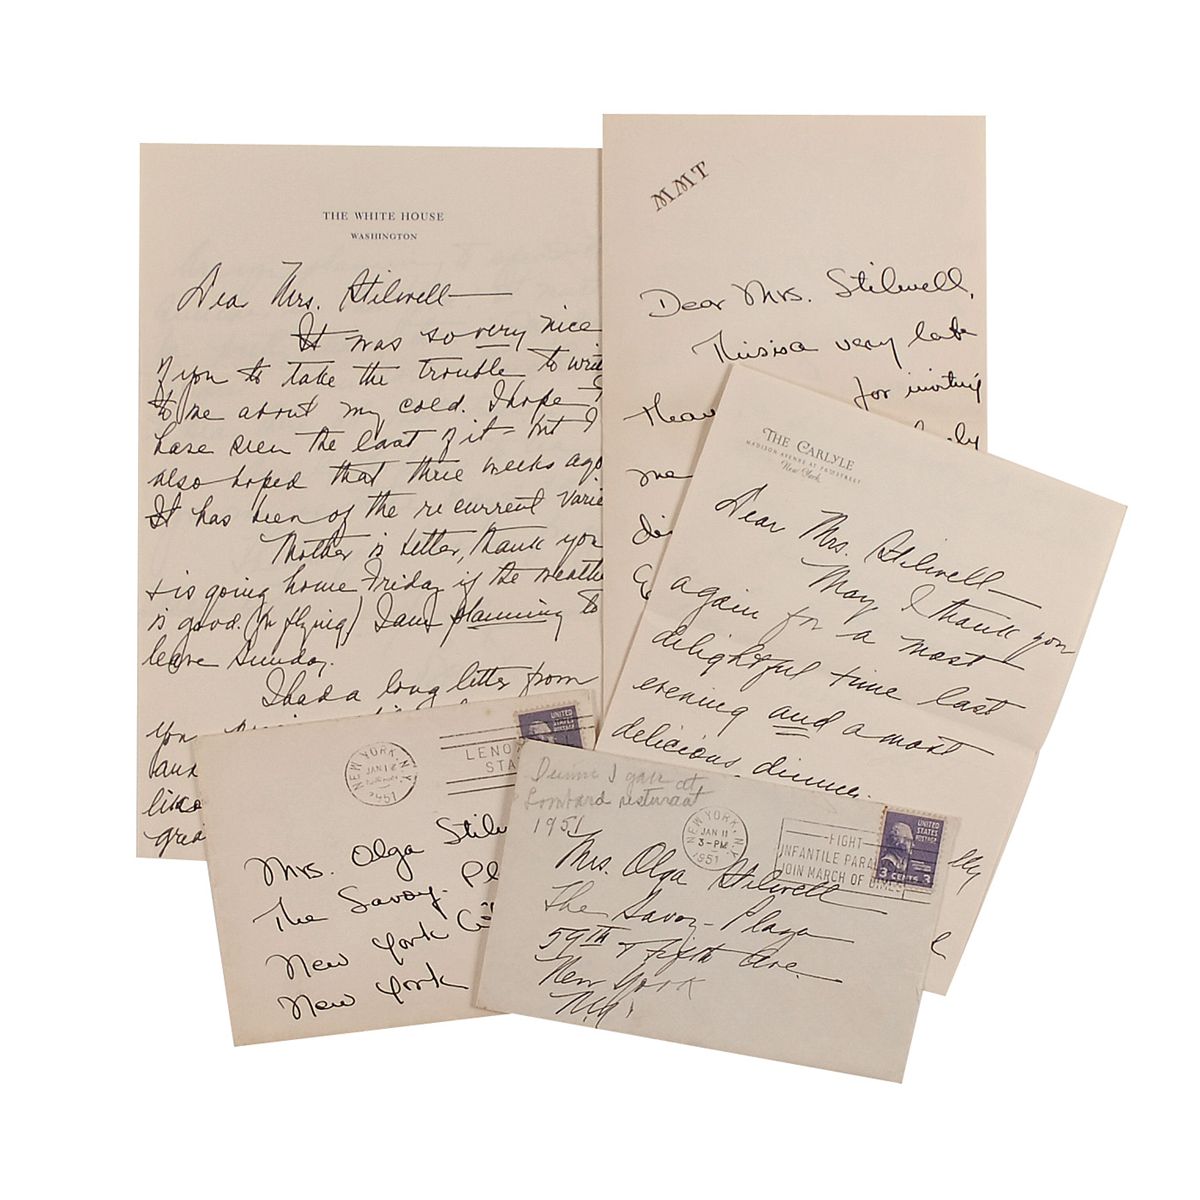 THE WHITE HOUSE
WASHINGTON
Dear Mrs. Stilwell—
It was so very nice
of you to take the trouble to write
to me about my cold. I hope I
have seen the last of it – but I
also hoped that three weeks ago.
It has been of the recurrent
Mother is better, thank you
+ is going home Friday if the weather
is good (for flying) I am planning to
leave Sunday.
I had a long letter from
you
and
like
grea
MMT
Dear Mrs. Stilwell,
This is a very late
for inviting
me
THE CARLYLE
MADISON AVENUE AT 76TH STREET
New York
Dear Mrs. Stilwell—
May I thank you
again for a most
delightful time last
evening and a most
delicious dinner.
NEW YORK, N.Y.
JAN 12
1951
LENO
STA
UNITED
STATES
POSTAGE
Mrs. Olga Stilw
The Savoy-Pl
New York Ci
New York
Dinner I gave at
Lombard resturant
1951
NEW YORK, N.Y.
JAN 11
3-PM
1951
FIGHT
INFANTILE PARA
JOIN MARCH OF DIMES
UNITED
STATES
POSTAGE
3 CENTS 3
Mrs. Olga Stilwell
The Savoy-Plaza
59th + Fifth Ave.
New York
N.Y.